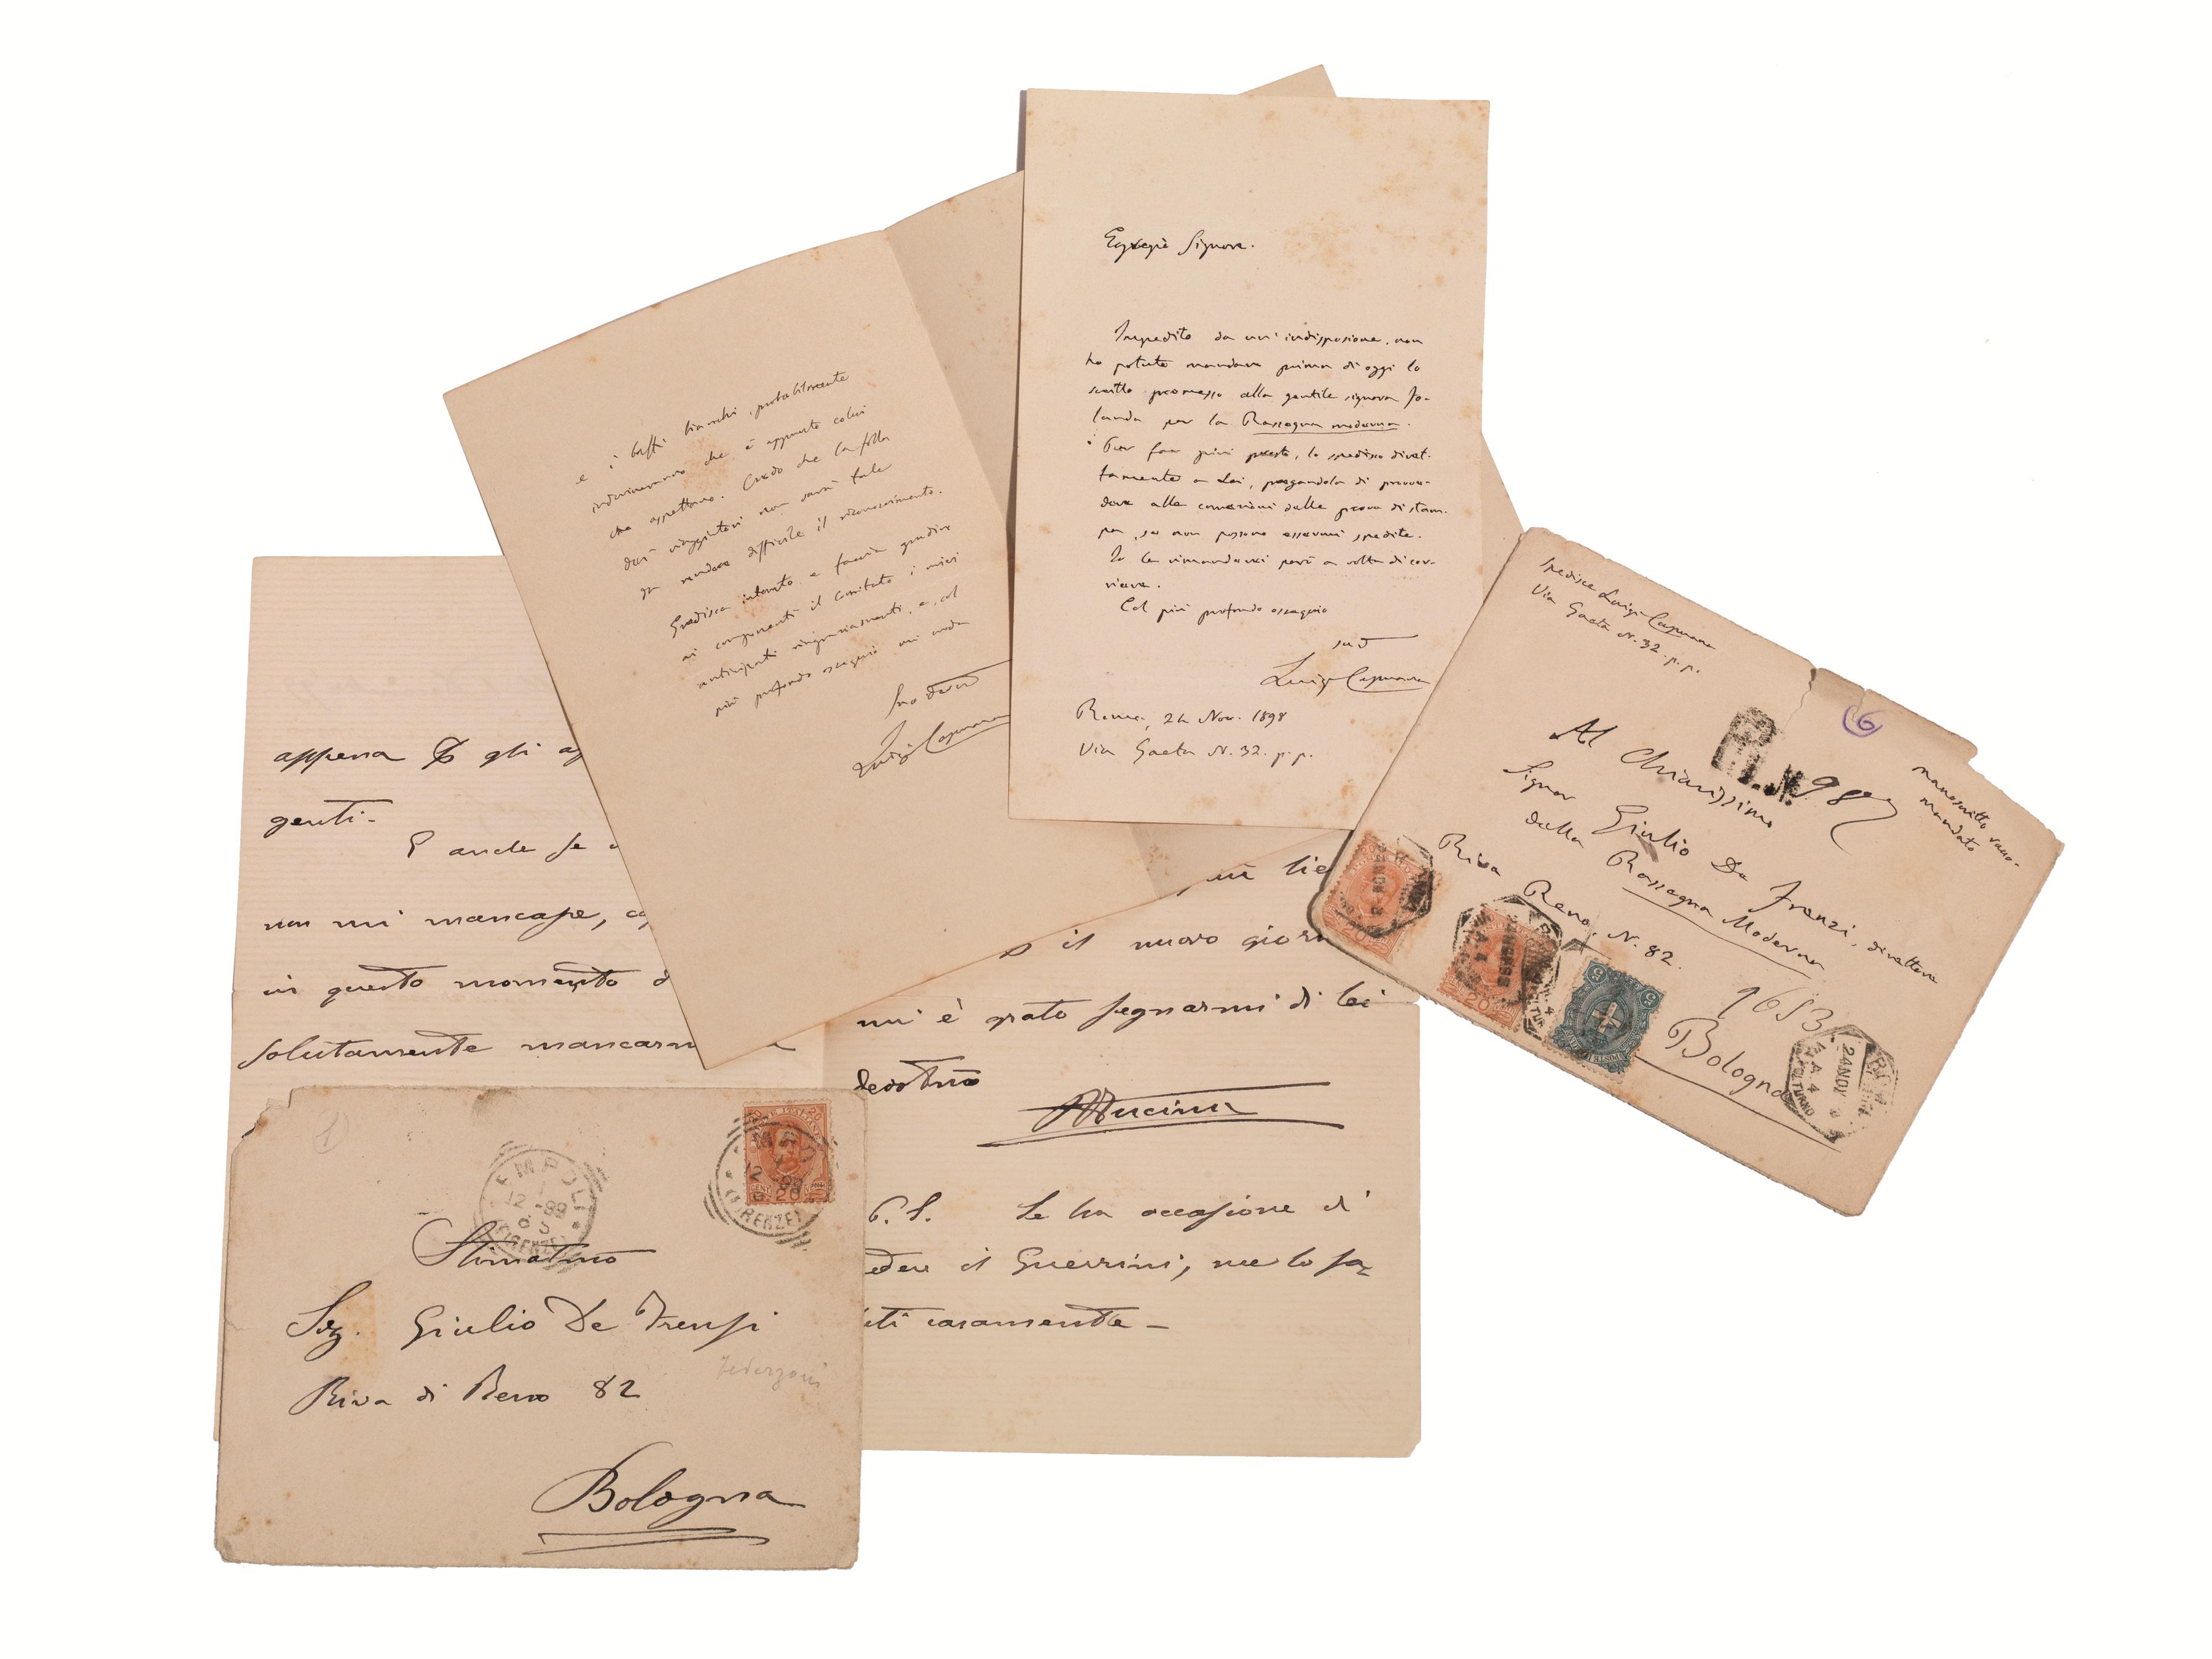 Egregio Signore.
Impedito da un'indisposizione, non
ho potuto mandare prima di oggi lo
scritto promesso alla gentile signora Jo-
landa per la Rassegna moderna.
Per far più presto, lo spedisco diret-
tamente a Lei, pregandola di provve-
dere alle correzioni delle prove di stam-
pa, se non possono essermi spedite.
Io le rimanderei però a volta di cor-
riere.
Col più profondo ossequio
suo
Luigi Capuana
Roma, 24 Nov. 1898
Via Gaeta N. 32. p. p.
e i baffi bianchi, probabilmente
indovineranno che è appunto colui
che aspettano. Credo che la folla
dei viaggiatori non sarà tale
da rendere difficile il riconoscimento.
Gradisca intanto e faccia gradire
ai componenti il Comitato i miei
anticipati ringraziamenti, e, col
più profondo ossequio mi creda
Suo devmo
Luigi Capuana
Spedisce Luigi Capuana
Via Gaeta N. 32. p. p.
6
manoscritto racco-
mandato
R
N. 98
Al Chiarissimo
Signor Giulio De Frenzi, direttore
della Rassegna Moderna
Riva Reno, N. 82.
1683
Bologna
24 NOV
5
5
20
20
appena
gli
genti.
E anche se
non mi mancasse,
in questo momento
solutamente
il nuovo
mi è grato segnarmi di lei
devotmo
P. S. Se ha occasione di
vedere il Guerrini, me lo sa-
luti caramente -
1
EMPOLI
12 - 99
(FIRENZE)
20
(FIRENZE)
Stimatmo
Sig. Giulio De Frenzi
Federzoni
Riva di Reno 82
Bologna